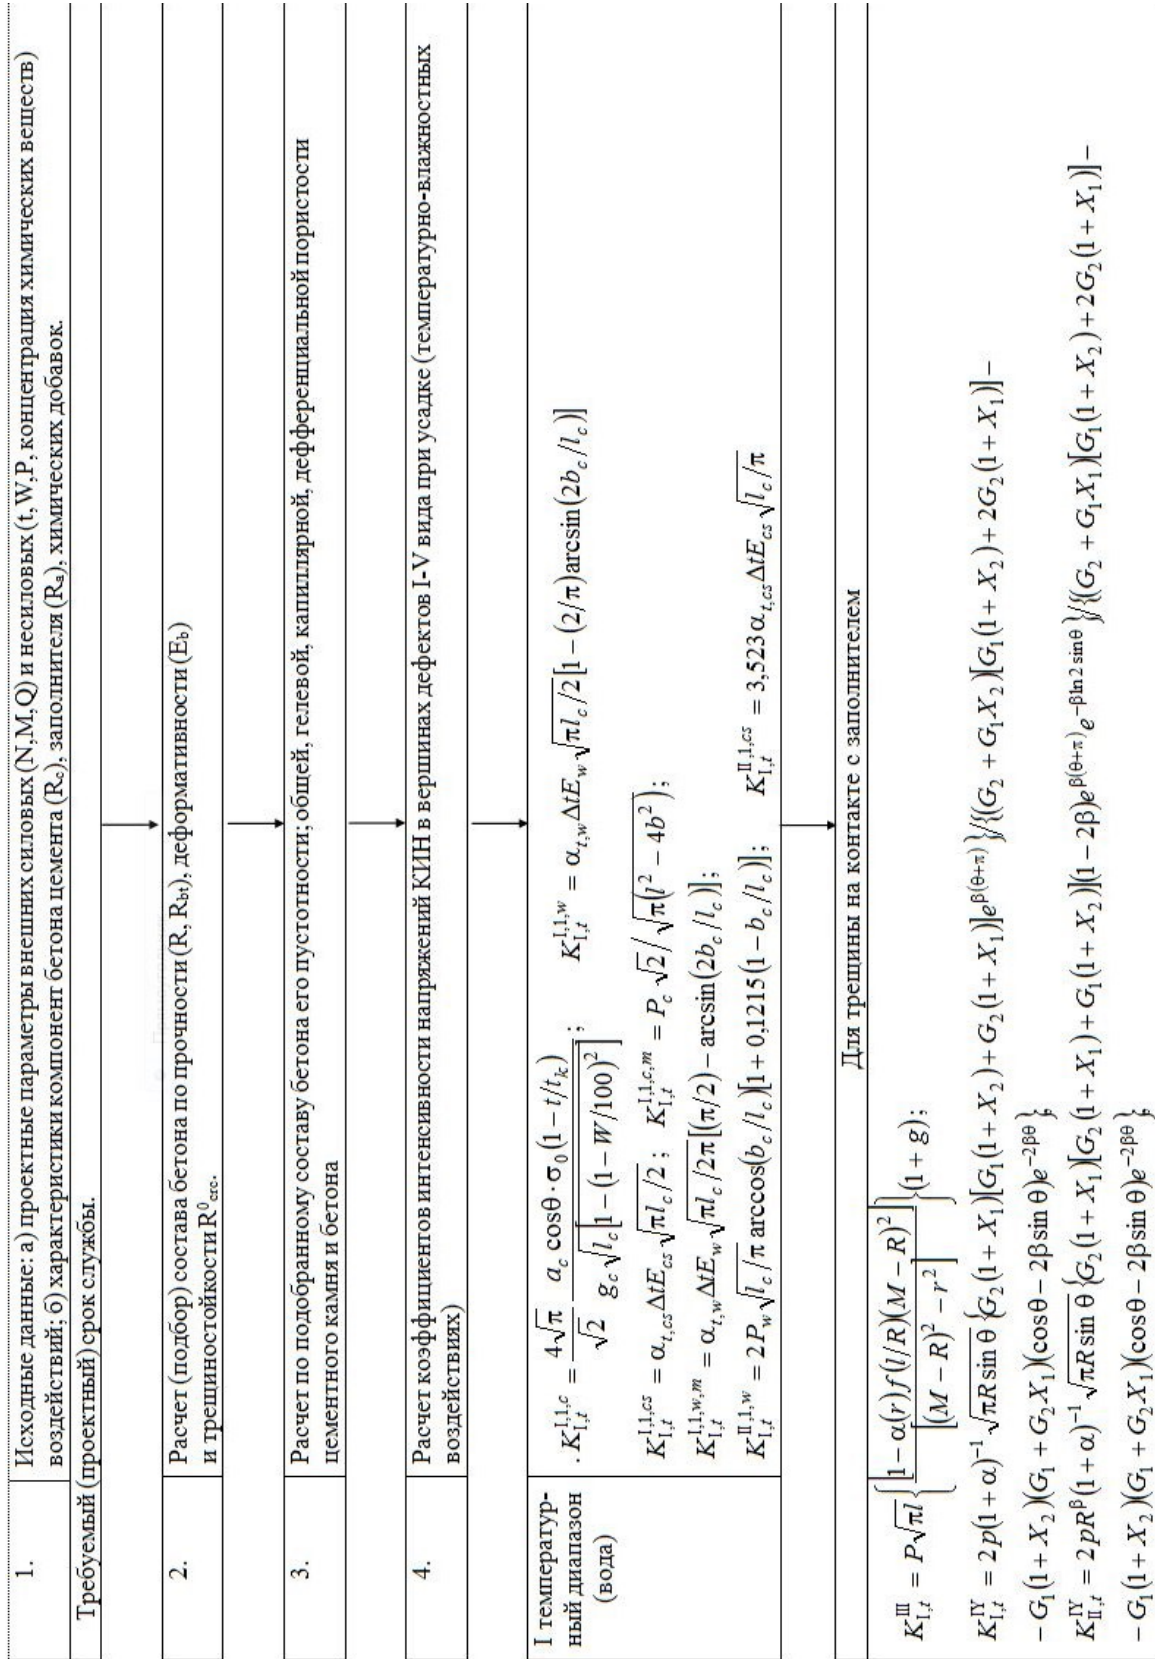 1.
Исходные данные: а) проектные параметры внешних силовых (N,M,Q) и несиловых (t,W,P, концентрация химических веществ)
воздействий; б) характеристики компонент бетона цемента (Rc), заполнителя (Ra), химических добавок.
Требуемый (проектный) срок службы.
2.
Расчет (подбор) состава бетона по прочности (R, Rbt), деформативности (Eb)
и трещиностойкости R⁰crc.
3.
Расчет по подобранному составу бетона его пустотности; общей, гелевой, капиллярной, дефференциальной пористости
цементного камня и бетона
4.
Расчет коэффициентов интенсивности напряжений КИН в вершинах дефектов I-V вида при усадке (температурно-влажностных
воздействиях)
I температур-
ный диапазон
(вода)
. K_{I,t}^{I,1,c} = \frac{4\sqrt{π}}{\sqrt{2}} \frac{a_c cosθ·σ_0(1-t/t_k)}{g_c\sqrt{l_c[1-(1-W/100)^2]}}; K_{I,t}^{I,1,w} = α_{t,w}ΔtE_w\sqrt{πl_c/2}[1-(2/π)arcsin(2b_c/l_c)]
K_{I,t}^{I,1,cs} = α_{t,cs}ΔtE_{cs}\sqrt{πl_c/2}; K_{I,t}^{I,1,c,m} = P_c\sqrt{2}/\sqrt{π(l^2-4b^2)};
K_{I,t}^{I,1,w,m} = α_{t,w}ΔtE_w\sqrt{πl_c/2π}[(π/2)-arcsin(2b_c/l_c)];
K_{I,t}^{II,1,w} = 2P_w\sqrt{l_c/π} arccos(b_c/l_c)[1+0,1215(1-b_c/l_c)]; K_{I,t}^{II,1,cs} = 3,523α_{t,cs}ΔtE_{cs}\sqrt{l_c/π}
Для трещины на контакте с заполнителем
K_{I,t}^{III} = P\sqrt{πl}{\frac{[1-α(r)f(l/R)(M-R)^2]}{[(M-R)^2-r^2]}}(1+g);
K_{I,t}^{IY} = 2p(1+α)^{-1}\sqrt{πRsinθ}{G_2(1+X_1)[G_1(1+X_2)+G_2(1+X_1)]e^{β(θ+π)}}/{(G_2+G_1X_2)[G_1(1+X_2)+2G_2(1+X_1)]-
-G_1(1+X_2)(G_1+G_2X_1)(cosθ-2βsinθ)e^{-2βθ}};
K_{II,t}^{IY} = 2pR^β(1+α)^{-1}\sqrt{πRsinθ}{G_2(1+X_1)[G_2(1+X_1)+G_1(1+X_2)](1-2β)e^{β(θ+π)}e^{-βln2sinθ}}/{(G_2+G_1X_1)[G_1(1+X_2)+2G_2(1+X_1)]-
-G_1(1+X_2)(G_1+G_2X_1)(cosθ-2βsinθ)e^{-2βθ}};